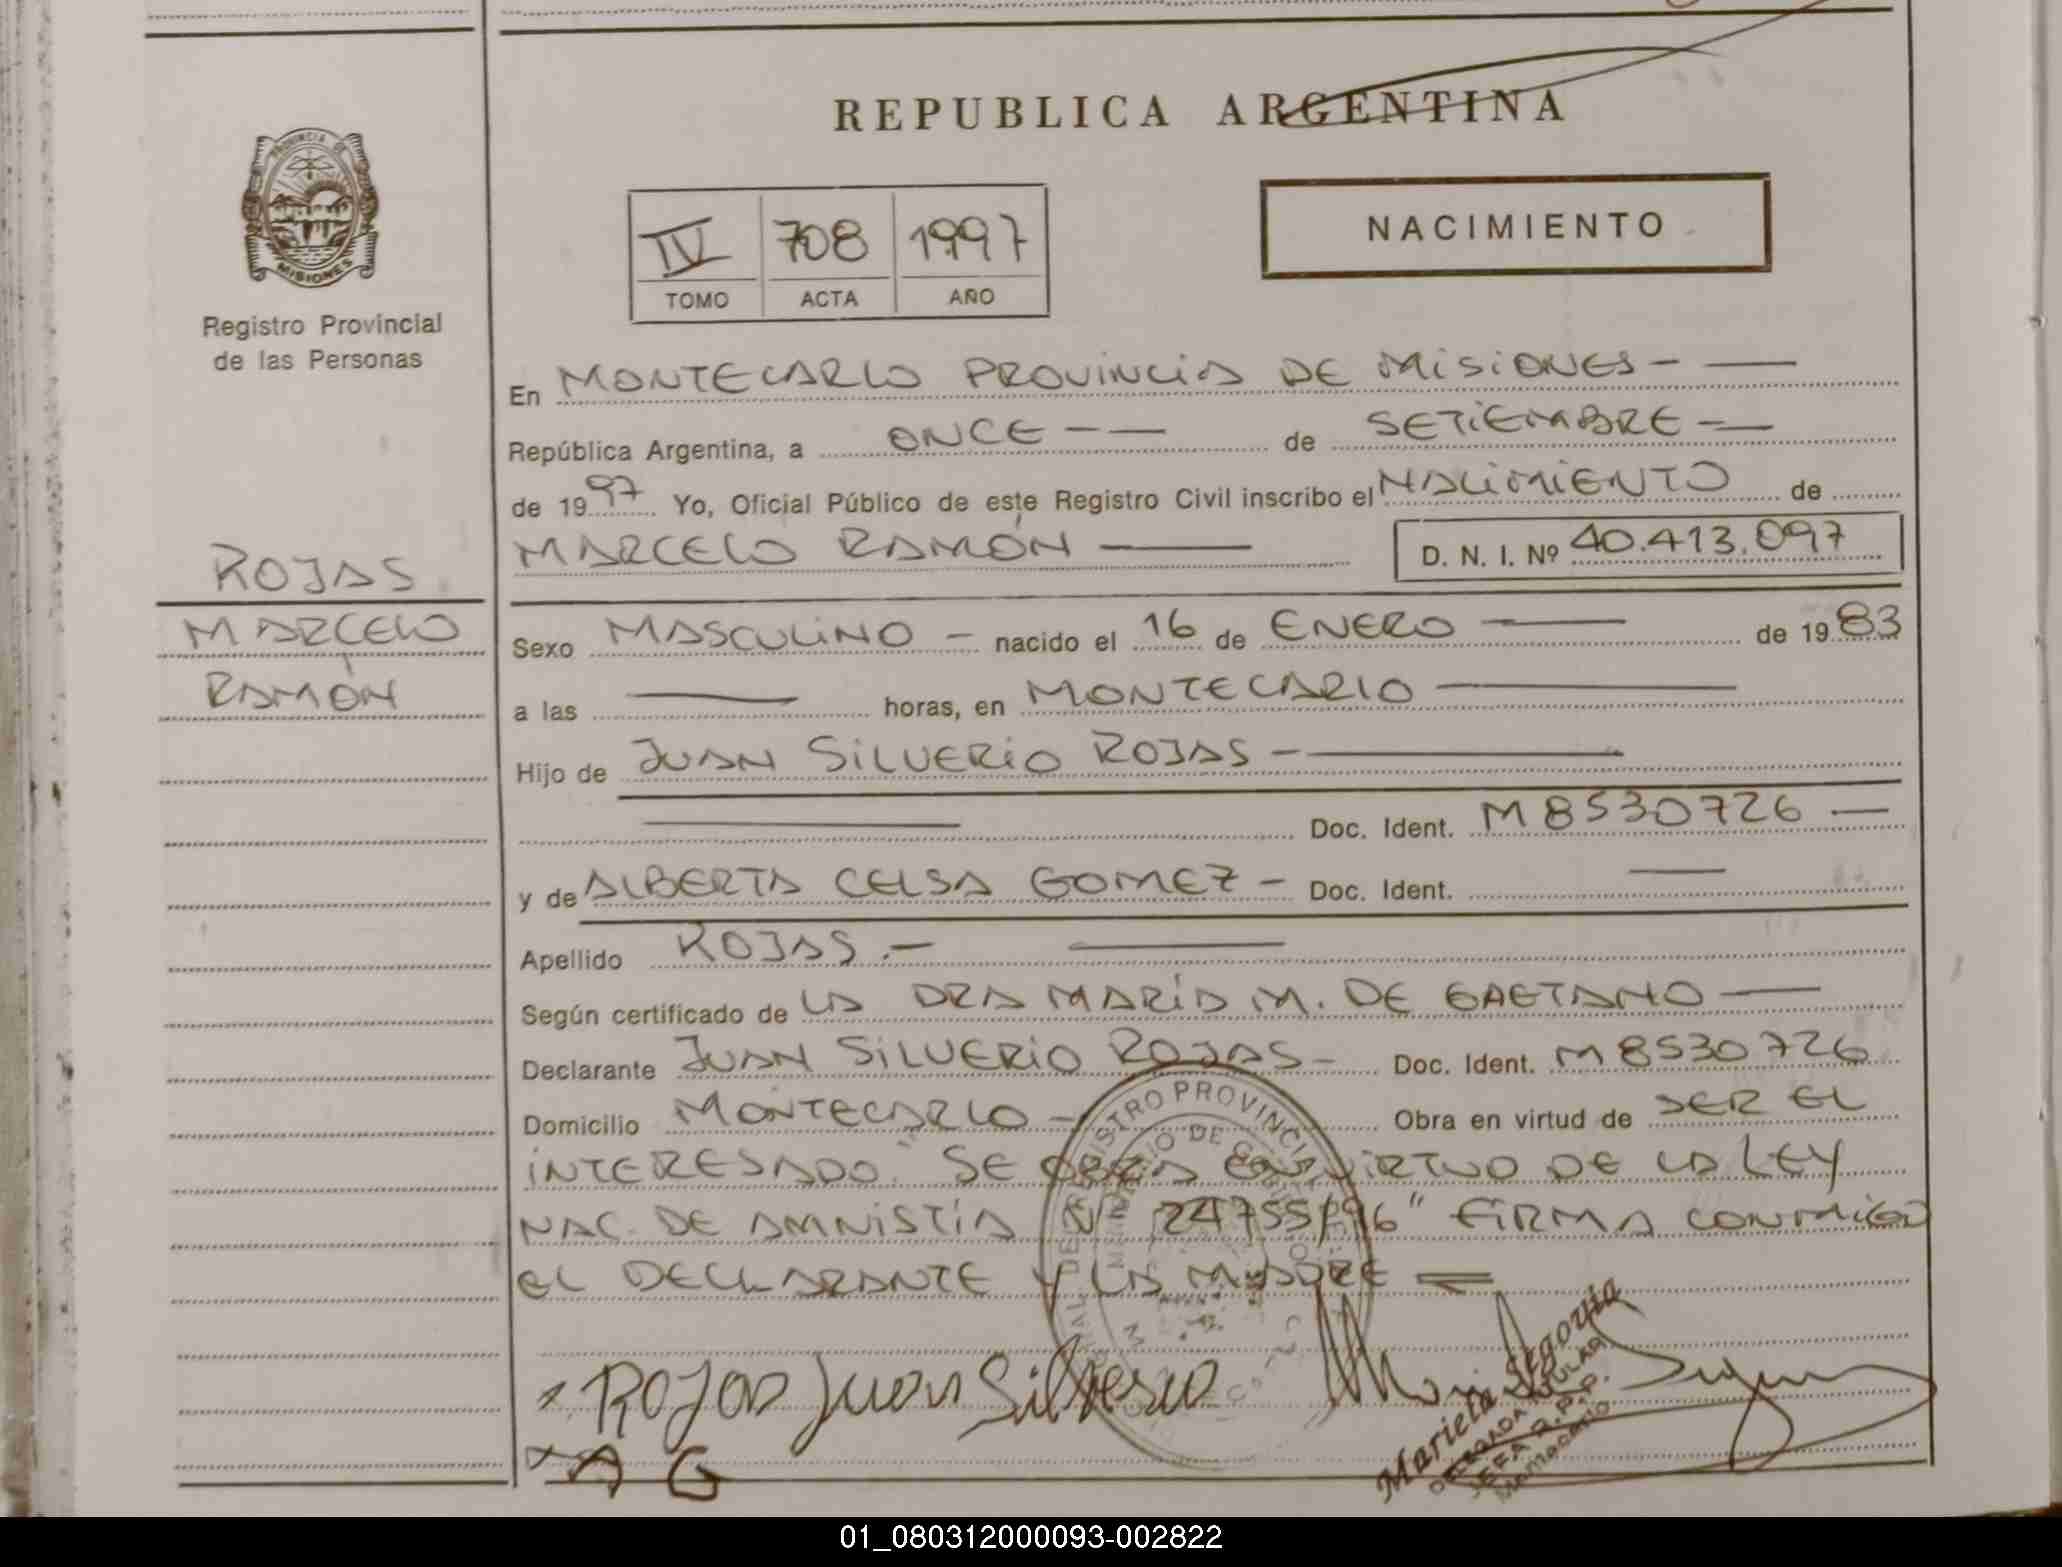 REPUBLICA ARGENTINA
PROVINCIA DE
MISIONES
Registro Provincial
de las Personas
IV 708 1997
TOMO ACTA AÑO
NACIMIENTO
En MONTECARLO PROVINCIA DE MISIONES -
República Argentina, a ONCE - - de SETIEMBRE -
de 1997 Yo, Oficial Público de este Registro Civil inscribo el NACIMIENTO de
MARCELO RAMÓN D. N. I. Nº 40.413.097
ROJAS
MARCELO
RAMÓN
Sexo MASCULINO - nacido el 16 de ENERO de 1983
a las horas, en MONTECARLO
Hijo de JUAN SILVERIO ROJAS -
Doc. Ident. M8530726 -
y de ALBERTA CELSA GOMEZ - Doc. Ident.
Apellido ROJAS.-
Según certificado de LA DRA MARÍA M. DE GAETANO
Declarante JUAN SILVERIO ROJAS - Doc. Ident. M8530726
Domicilio MONTECARLO - Obra en virtud de SER EL
INTERESADO. "SE OBRA EN VIRTUD DE LA LEY
NAC. DE AMNISTÍA Nº 24755/96" FIRMA CONMIGO
EL DECLARANTE Y LA MADRE =
REGISTRO PROVINCIAL
Rojas Juan Silverio
A G
Mariela Segovia
DELEGADA TITULAR
JEFA R.P.P.
01_080312000093-002822